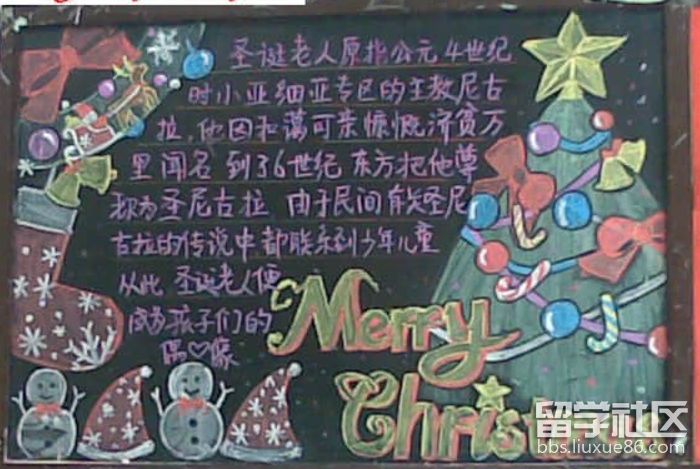 圣诞老人原指公元4世纪
时小亚细亚专区的主教尼古
拉,他因和蔼可亲慷慨济贫万
里闻名 到了6世纪 东方把他尊
称为圣尼古拉 由于民间有关圣尼
古拉的传说中都联系到少年儿童
从此 圣诞老人便
成为孩子们的
偶♡像
Merry
Christmas
留学社区
bbs.liuxue86.com